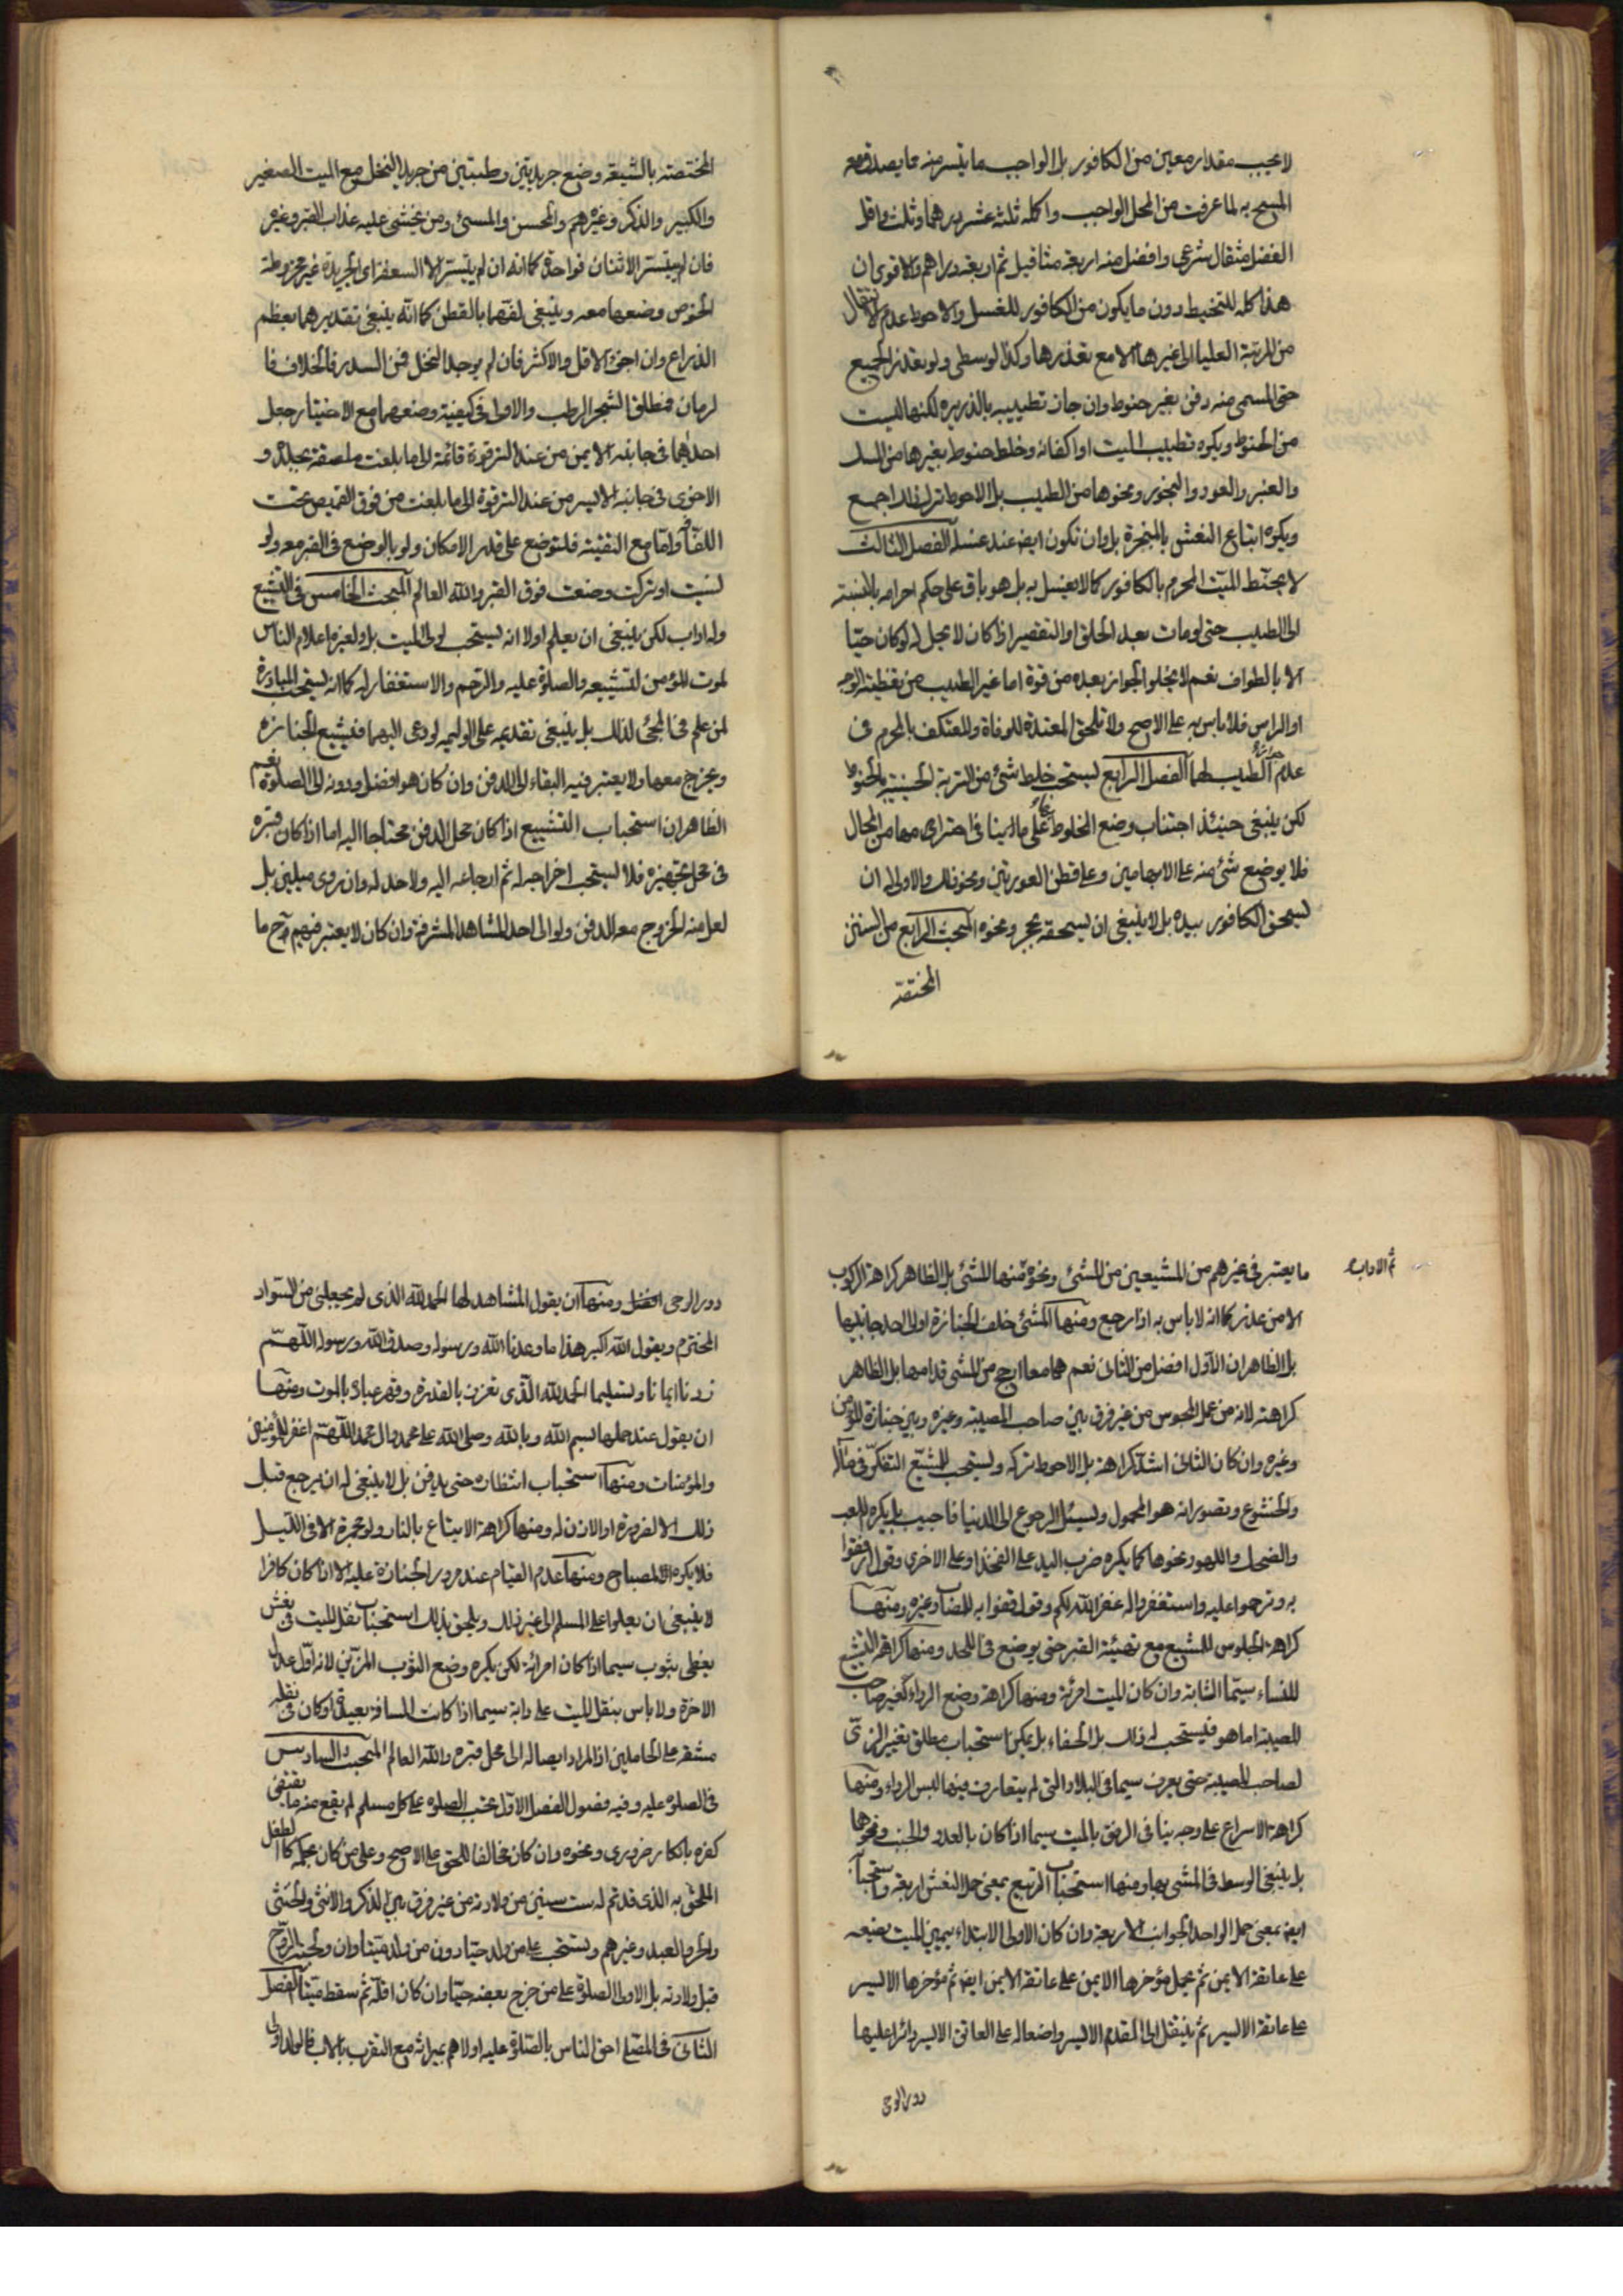 لا يجب مقدار معين من الكافور بل الواجب ما يتيسر منه مما يصدق معه
المسح به لما عرفت من المحل الواجب واكمله ثلثة عشر درهما وثلث واقل
الفضل مثقال شرعي وافضل منه اربعة مثاقيل ثم اربعة دراهم والاقوى ان
هذا كله للتحنيط دون ما يكون من الكافور للغسل والاحوط عدم الانتقال
من المرتبة العليا الى غيرها الا مع تعذرها وكذا الوسطى ولو تعذر الجميع
حتى المسمى منه دفن بغير حنوط وان جاز تطييبه بالذريره لكنها ليست
من الحنوط ويكره تطييب الميت او اكفانه وخلط حنوط بغيرها من المسك
والعنبر والعود والبخور ونحوها من الطيب بل الاحوط ترك ذلك اجمع
ويكره اتباع النعش بالمجمرة بل وان تكون ايضا عند غسله الفصل الثالث
لا يحنط الميت المحرم بالكافور كما لا يغسل به بل هو باق على حكم احرامه بالنسبة
الى الطيب حتى لو مات بعد الحلق او التقصير اذا كان لا يحل له لو كان حيا
الا بالطواف نعم لا يخلو الجواز بعده من قوة اما غير الطيب من تغطية الوجه
او الراس فلا باس به على الاصح ولا تلحق المعتدة للوفاة والمعتكف بالمحرم في
عدم الطيب لهما الفصل الرابع يستحب خلط شئ من التربة الحسينية بالحنوط
لكن ينبغي حينئذ اجتناب وضع المخلوط على ما ينافي احترامها من المحال
فلا يوضع شئ منه على الابهامين وعلى قطن العورتين ونحو ذلك والاولى ان
يسحق الكافور بيده بل لا ينبغي ان يسحقه بحجر ونحوه المبحث الرابع من السنن
المختصة
المختصة بالشيعة وضع جريدتين رطبتين من جريد النخل مع الميت الصغير
والكبير والذكر وغيرهم والمحسن والمسئ ومن يخشى عليه عذاب القبر وغيره
فان لم يتيسر الاثنان فواحدة كما انه ان لم يتيسر الا السعفة اى الجريدة غير مخروطة
الخوص وضعها معه وينبغي لفهما بالقطن كما انه ينبغي تقديرهما بعظم
الذراع وان اجزى الاقل والاكثر فان لم يوجد النخل فمن السدر فالخلاف فا
لرمان فمطلق الشجر الرطب والاولى في كيفية وضعهما مع الاختيار جعل
احدهما في جانبه الايمن من عند الترقوة قائمة الى ما بلغت ملصقة بجلده و
الاخرى في جانبه الايسر من عند الترقوة الى ما بلغت من فوق القميص تحت
اللفافة واما مع التقية فلتوضع على قدر الامكان ولو بالوضع في القبر معه ولو
نسيت او تركت وضعت فوق القبر والله العالم المبحث الخامس في التشييع
وله اداب لكن ينبغي ان يعلم اولا انه يستحب لولى الميت بل ولغيره اعلام الناس
لموت المؤمن لتشييعه والصلوة عليه والترحم والاستغفار له كما انه يستحب المبادرة
لمن علم في المجئ لذلك بل ينبغي تقديمه على الوليمه لو دعى اليهما فيشيع الجنازه
ويخرج معها ولا يعتبر فيه البقاء الى الدفن وان كان هو افضل ودونه الى الصلوة نعم
الظاهر ان استحباب التشييع اذا كان محل الدفن محتاجا اليه اما اذا كان قبره
في محل تجهيزه فلا يستحب اخراجه له ثم ارجاعه اليه ولا حد له وان روى ميلين بل
لعل منه الخروج معه للدفن ولو الى احد المشاهد المشرفة وان كان لا يعتبر فيهم ح ما
ثم الاداب
ما يعتبر في غيرهم من المشيعين من المشئ ونحوه منها المشئ بل الظاهر كراهة الركوب
الا من عذر كما انه لا باس به اذا رجع ومنها المشئ خلف الجنازة او الى احد جانبيها
بل الظاهر ان الاول افضل من الثانى نعم هما معا ارجح من المشى قدامها بل الظاهر
كراهته لانه من عمل المجوس من غير فرق بين صاحب المصيبة وغيره وبين جنازة المؤمن
وغيره وان كان الثانى اشد كراهة بل الاحوط تركه ويستحب للمشيع التفكر في مآله
والخشوع وتصور انه هو المحمول ويسئل الرجوع الى الدنيا فاجيب بل يكره اللعب
والضحك واللهو ونحوها كما يكره ضرب اليد على الفخذ او على الاخرى وقول ارفقوا
به وترحموا عليه واستغفروا له غفر الله لكم وقول قفوا به للمصاب وغيره ومنها
كراهة الجلوس للمشيع مع تهيئة القبر حتى يوضع في اللحد ومنها كراهة التشييع
للنساء سيما الشابة وان كان الميت امرئة ومنها كراهة وضع الرداء لغير صاحب
المصيبة اما هو فيستحب له ذلك بل الحفاء بل يمكن استحباب مطلق تغيير الزى
لصاحب المصيبة حتى يعرف سيما في البلاد التى لم يتعارف فيها لبس الرداء ومنها
كراهة الاسراع على وجه ينافى الرفق بالميت سيما اذا كان بالعدو والخبب ونحوهما
بل ينبغي الوسط في المشى بها ومنها استحباب التربيع بمعنى حمل النعش اربعة واستحبابه
ايضا بمعنى حمل الواحد الجوانب الاربعة وان كان الاولى الابتداء بيمين الميت يضعه
على عاتقه الايمن ثم يحمل مؤخرها الايمن على عاتقه الايمن ايضا ثم مؤخرها الايسر
على عاتقه الايسر ثم ينتقل الى المقدم الايسر واضعا له على العاتق الايسر دائرا عليها
دور الرحى
دور الرحى افضل ومنها ان يقول المشاهد لها الحمد لله الذى لم يجعلنى من السواد
المخترم ويقول الله اكبر هذا ما وعدنا الله ورسوله وصدق الله ورسوله اللهم
زدنا ايمانا وتسليما الحمد لله الذى تعزز بالقدرة وقهر عباده بالموت ومنها
ان يقول عند حملها بسم الله وبالله وصلى الله على محمد وال محمد اللهم اغفر للمؤمنين
والمؤمنات ومنها استحباب انتظاره حتى يدفن بل لا ينبغي له ان يرجع قبل
ذلك الا لضرورة او الاذن له ومنها كراهة الاتباع بالنار ولو مجمرة الا في الليل
فلا يكره المصباح ومنها عدم القيام عند مرور الجنازة عليه الا اذا كان كافرا
لا ينبغي ان يعلوا على المسلم الى غير ذلك ويلحق بذلك استحباب نقل الميت في نعش
يغطى بثوب سيما اذا كان امرائة لكن يكره وضع الثوب المزين لانه اول عدل
الاخرة ولا باس بنقل الميت على دابة سيما اذا كانت المسافة بعيدة او كان في نقله
مشقة على الحاملين اذ المراد ايصاله الى محل قبره والله العالم المبحث السادس
في الصلوة عليه وفيه فصول الفصل الاول تجب الصلوة على كل مسلم لم يقع منه ما يقتضى
كفره بانكار ضرورى ونحوه وان كان مخالفا للحق على الاصح وعلى من كان بحكمه كالطفل
الملحق به الذى قد تم له ست سنين من ولادته من غير فرق بين الذكر والانثى والخنثى
والحر والعبد وغيرهم وتستحب على من ولد حيا دون من ولد ميتا وان ولجته الروح
قبل ولادته بل الاولى الصلوة على من خرج بعضه حيا وان كان اقله ثم سقط ميتا الفصل
الثانى في المصلى احق الناس بالصلوة عليه اولاهم بميراثه مع التقرب بالاب فالولد اولى